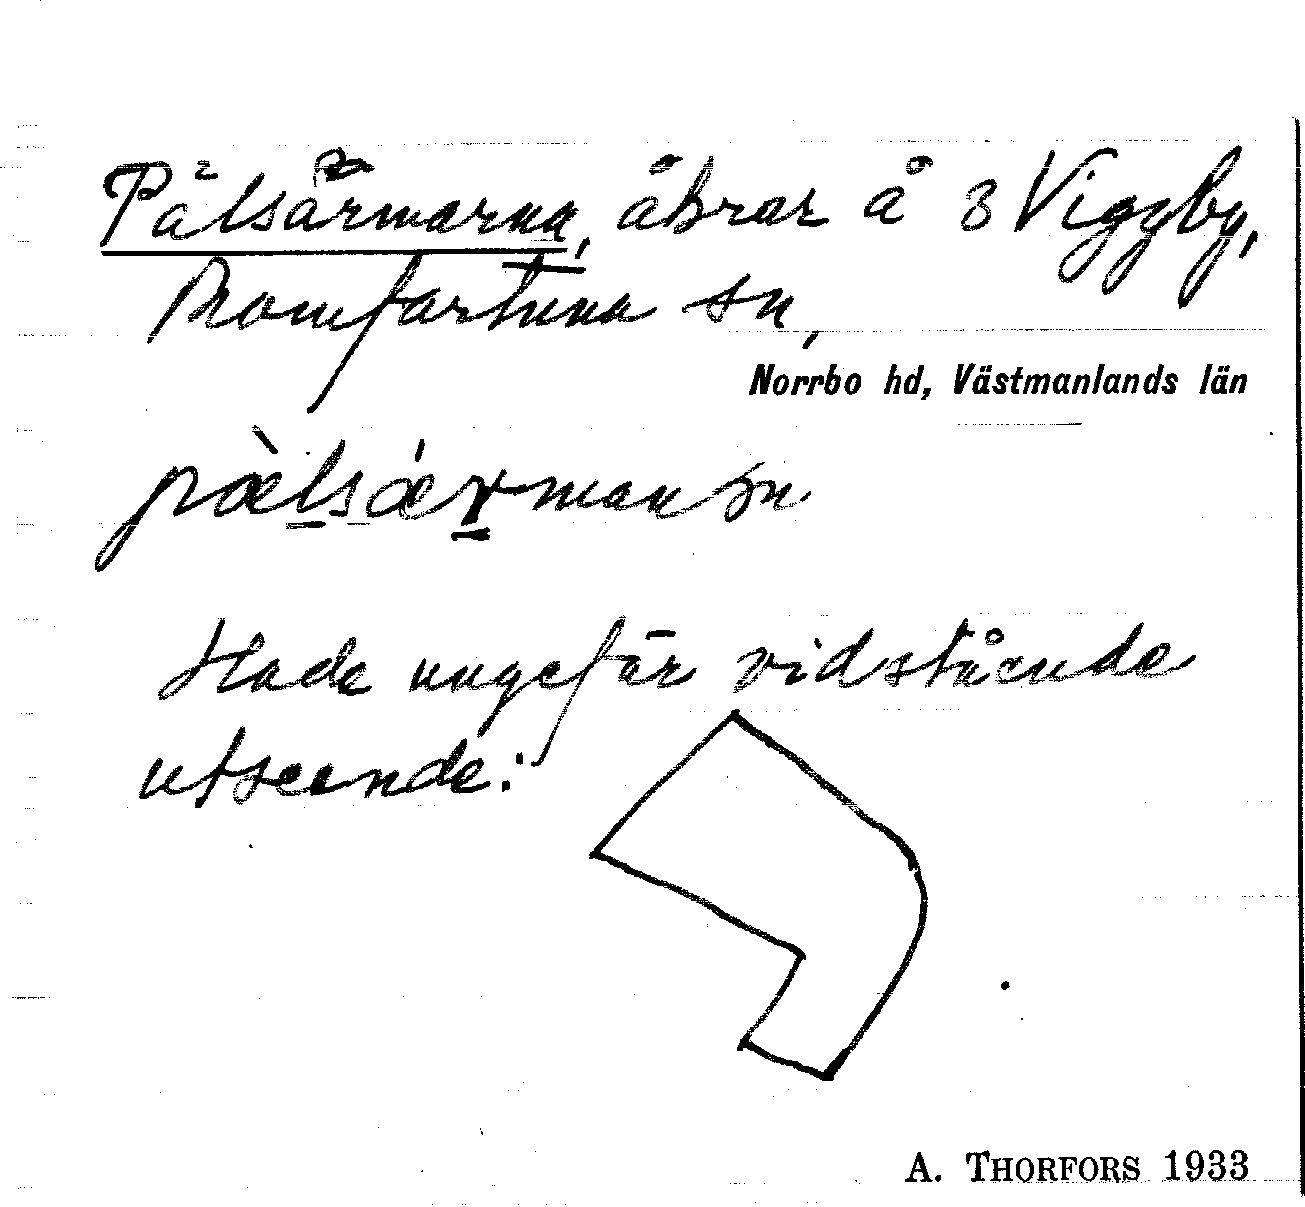 Pälsärmarna, åkrar å 3 Viggby,
Romfartuna sn,
Norrbo hd, Västmanlands län
pæ̀lsǽrmanɷn
Hade ungefär vidstående
utseende:
A. THORFORS 1933